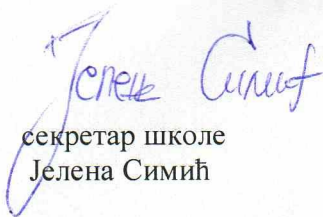 Јелена Симић
секретар школе
Јелена Симић